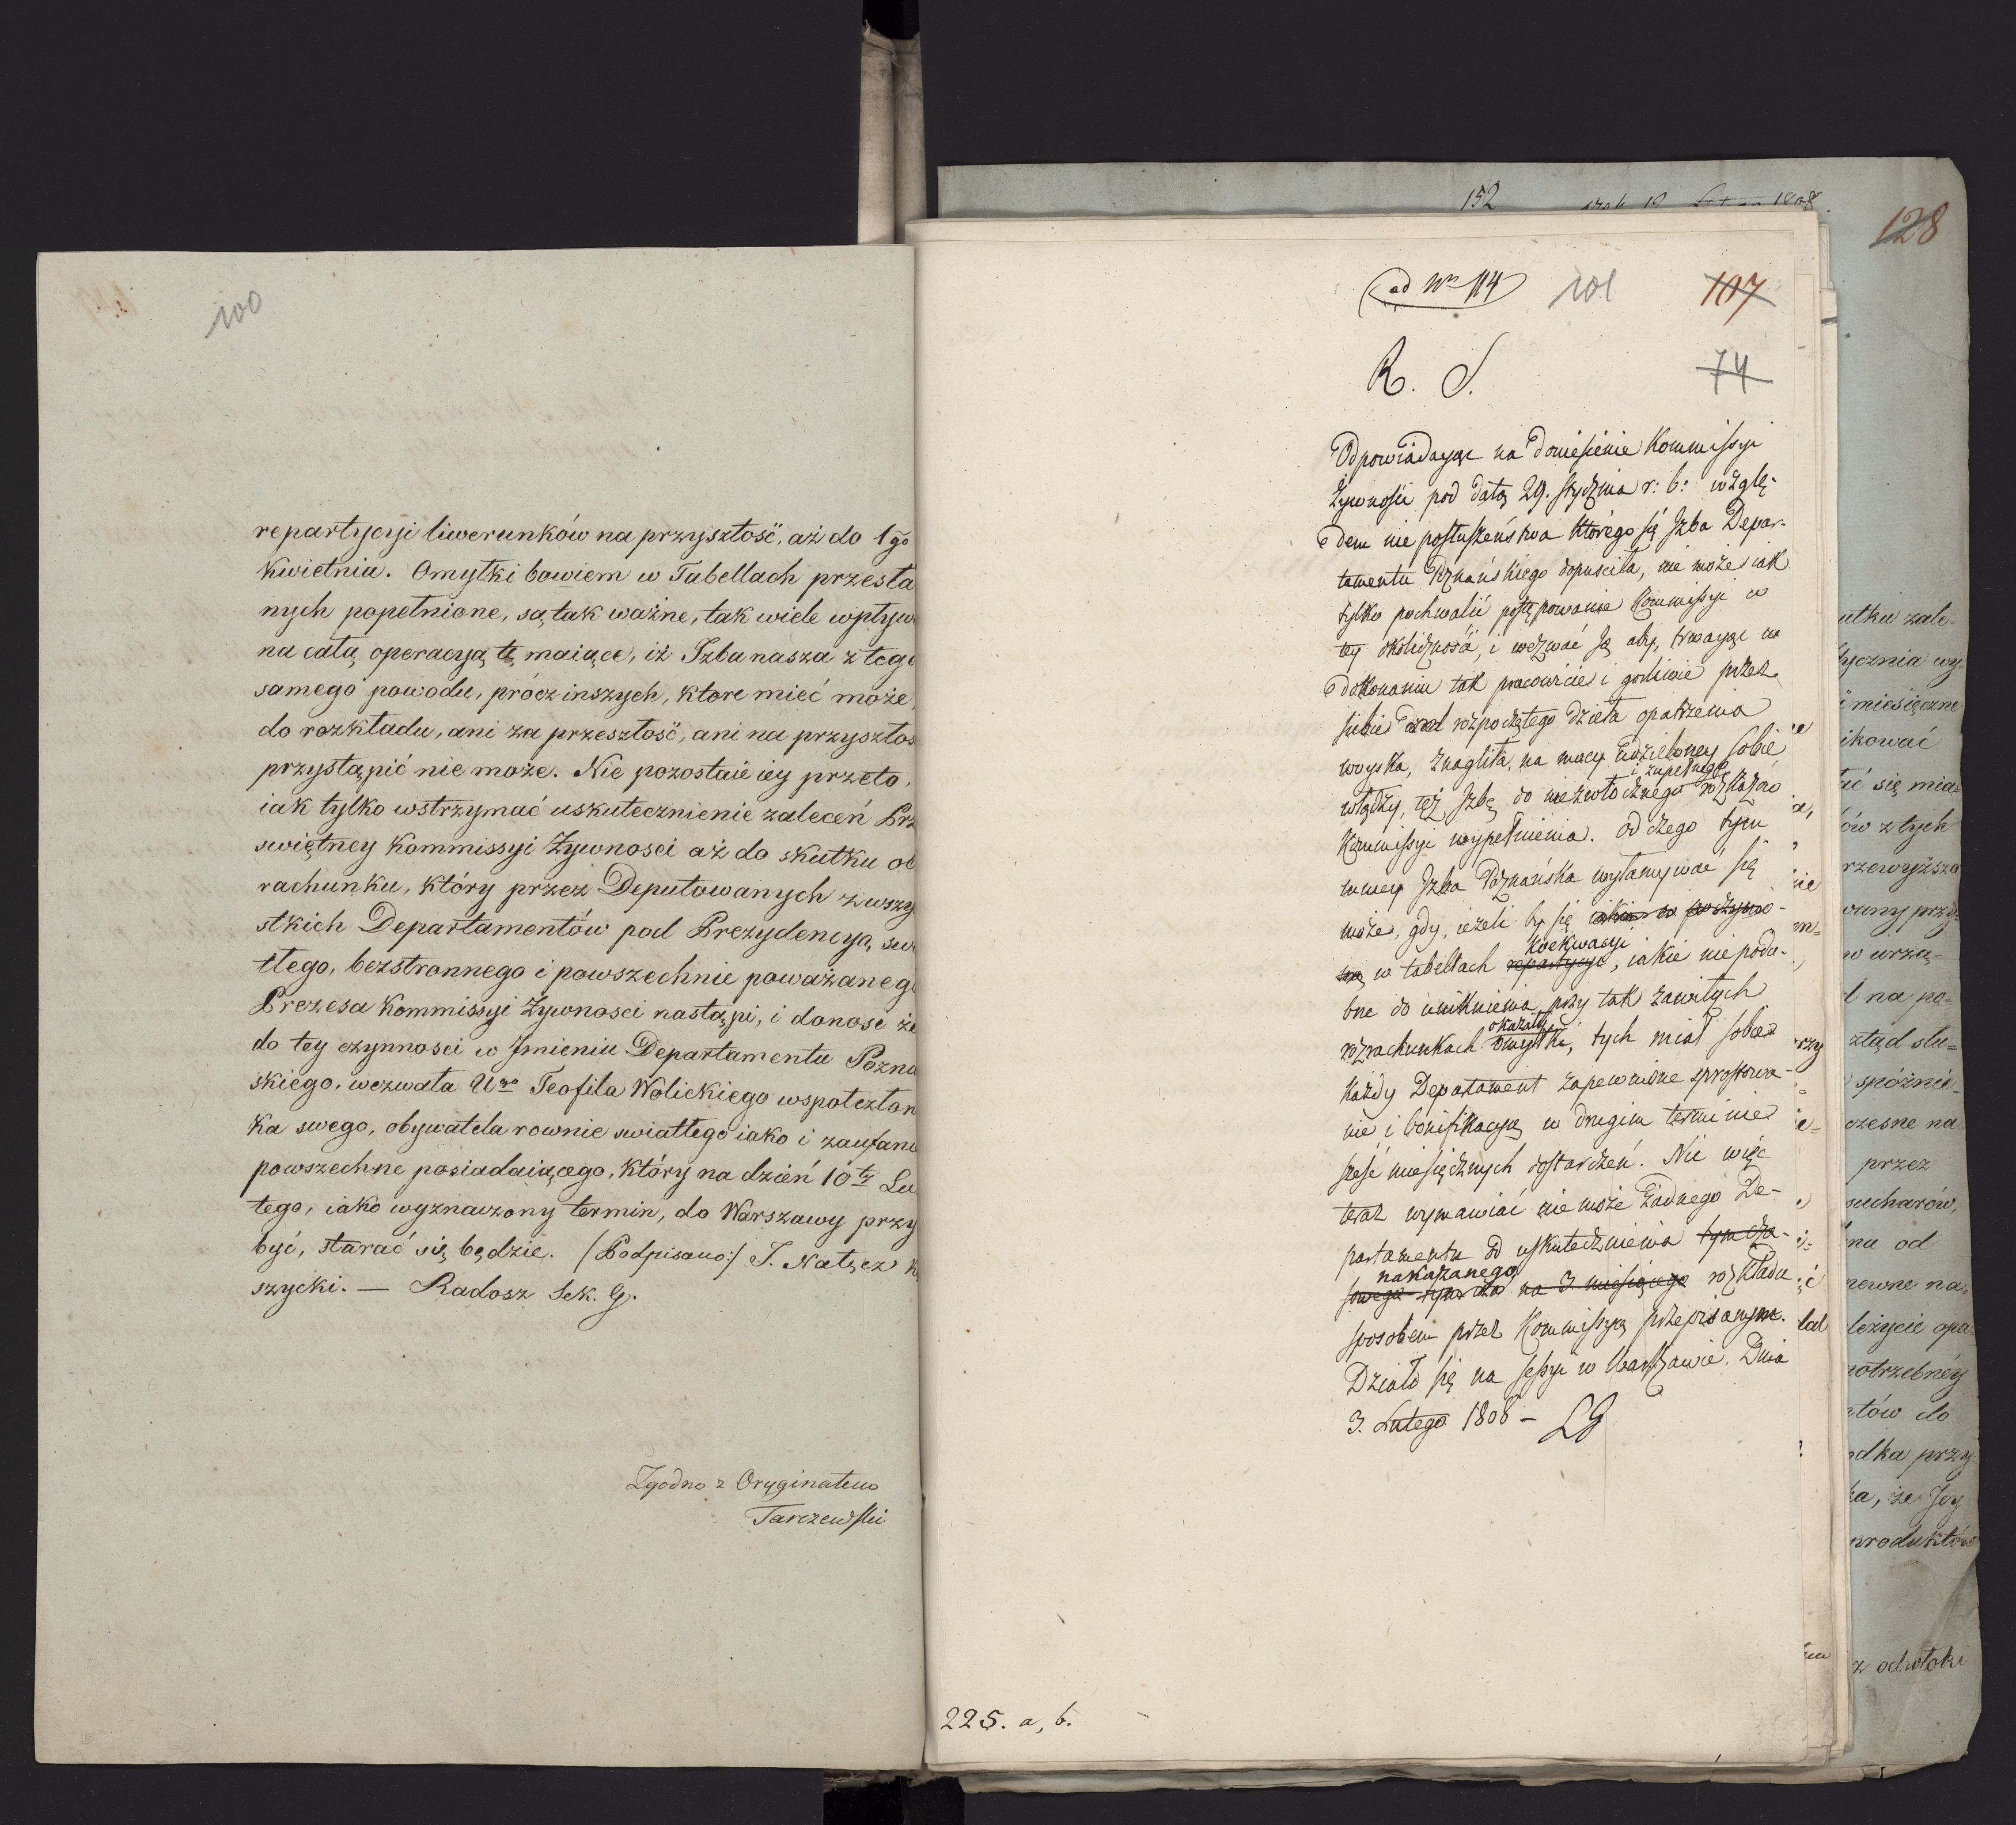 100
repartycyi liwerunków na przyszłość, aż do 1go
kwietnia. Omyłki bowiem w Tabellach przesła
nych popełnione, są tak ważne, tak wiele wpływu
na całą operacyą tę maiące, iż Izba nasza z tego
samego powodu, prócz inszych, ktore mieć może,
do rozkładu, ani za przeszłość, ani na przyszłos
przystąpić nie może. Nie pozostaie iey przeto,
iak tylko wstrzymać uskutecznienie zaleceń Prz
swiętney Kommissyi Żywnosci aż do skutku ob
rachunku, który przez Deputowanych z wszy
stkich Departamentów pod Prezydencyą, swi
tłego, bezstronnego i powszechnie poważanego
Prezesa Kommissyi Żywnosci nastąpi, i donosi że
do tey czynnosci w Jmieniu Departamentu Pozna
skiego, wezwała Ugo Teofila Wolickiego wspołczłon
ka swego, obywatela rownie swiatłego iako i zaufanie
powszechne posiadaiącego, który na dzień 10ty Lu
tego, iako wyznaczony termin, do Warszawy przy
być, starać się będzie. (Podpisano:) J. Nałęcz K
szycki. — Radosz Sek. G.
Zgodno z Oryginałem
Tarczewski
152
1808.
128
ad Nro 114
101
107
R. S.
74
Odpowiadaiąc na Doniesienie Kommissyi
Żywności pod datą 29. Stycznia r: b: wzglę-
dem nie posłuszeństwa którego się Izba Depar-
tamentu Poznańskiego dopuściła, nie może iak
tylko pochwalić postępowanie Kommissyi w
tey okoliczność, i wezwać Ją aby, trwaiąc w
dokonaniu tak pracowicie i gorliwie przez
siebie rozpoczętego dzieła opatrzenia
woyska, znagliła, na mocy udzieloney sobie
władzy, też Izbę do niezwłocznego i zupełnego rozkazów
Kommissyi wypełnienia. Od czego tym
mniey Izba Poznańska wyłamywać się
może, gdy, ieżeli by się
w tabellach repartycyi koekwacyi, iakie nie podo-
bne do uniknienia przy tak zawiłych
rozrachunkach okazały omyłki, tych miał sobie
każdy Departament zapewnione sprostowa-
nie i bonifikacyą w drugim terminie
sześć miesięcznych dostarczeń. Nic więc
teraz wymawiać nie może żadnego De-
partamentu od uskutecznienia tymcza-
sowego na 3. miesiące nakazanego rozkładu
sposobem przez Kommissyą przepisanym.
Działo się na sessyi w Warszawie. Dnia
3. Lutego 1808 – LG
225. a, b.
utku zale-
tycznia wy-
miesięczne
ikować
ć się mia-
ów z tych
rzewyższa
wany przy-
w urzą-
na po-
ztąd słu-
spóźnie-
czesne na
przez
sucharów,
na od
ewne na-
leżycie opa-
potrzebnéy
tów do
dka przy-
ka, że Jey
produktów
z odwłoki